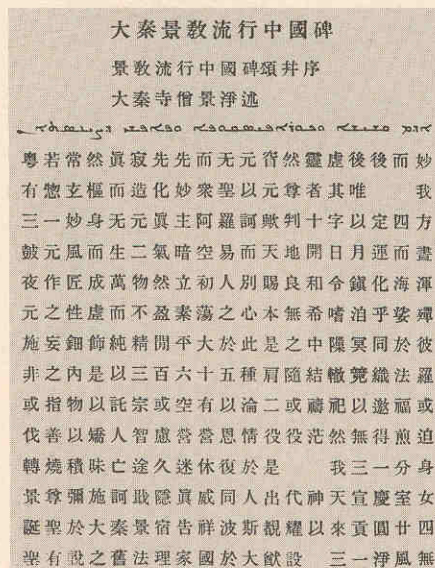 大秦景教流行中國碑
景教流行中國碑頌并序
大秦寺僧景淨述
粤若常然真寂先先而无元窅然靈虛後後而妙
有惣玄樞而造化妙衆聖以元尊者其唯　我
三一妙身无元真主阿羅訶歟判十字以定四方
鼓元風而生二氣暗空易而天地開日月運而晝
夜作匠成萬物然立初人別賜良和令鎮化海渾
元之性虛而不盈素蕩之心本無希嗜洎乎娑殫
施妄鈿飾純精閒平大於此是之中隟冥同於彼
非之內是以三百六十五種肩隨結轍競織法羅
或指物以託宗或空有以淪二或禱祀以邀福或
伐善以矯人智慮營營思情役役茫然無得煎迫
轉燒積昧亡途久迷休復於是　我三一分身
景尊彌施訶戢隱真威同人出代神天宣慶室女
誕聖於大秦景宿告祥波斯覩耀以來貢圓廿四
聖有說之舊法理家國於大猷設　三一淨風無